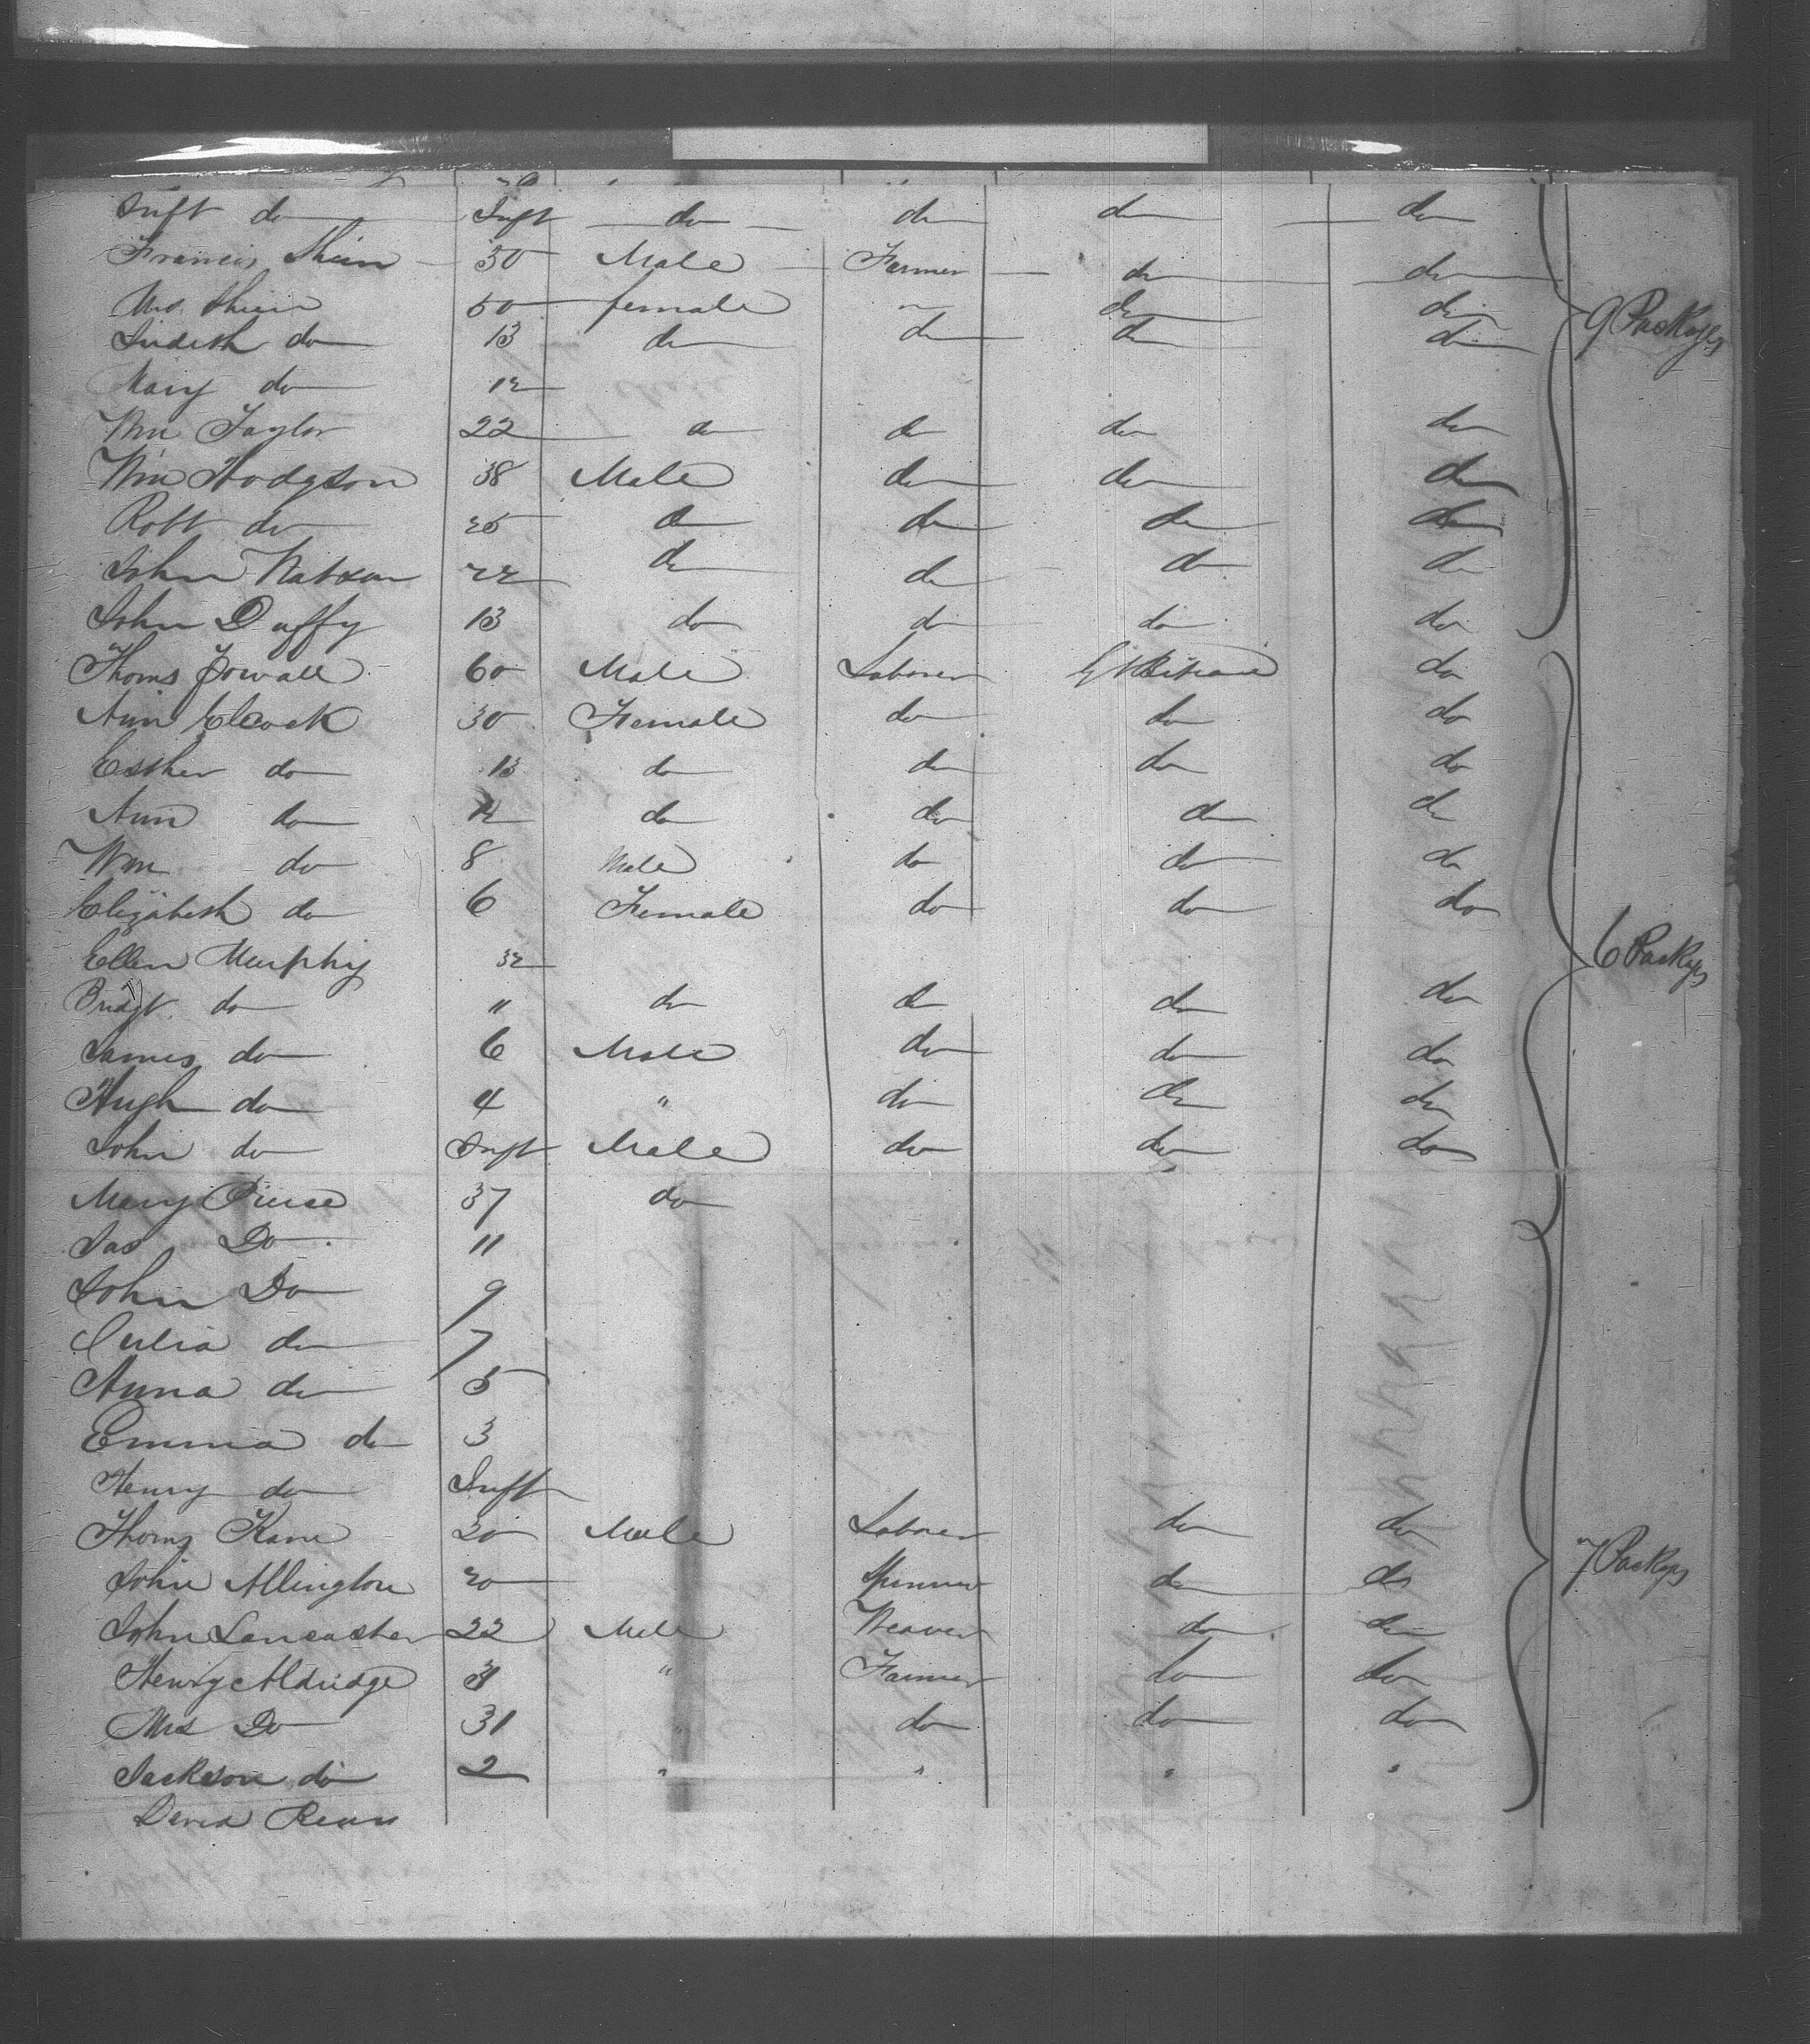 Inft do Inft do do do do
Francis Shien 30 Male Farmer do do
Mrs Shien 50 female do do
Judith do 13 do do do do
Mary do 12
Wm Taylor 22 do do do do
Wm Hodgson 38 Male do do do
Robt do 25 do do do do
John Watson 22 do do do do
John Duffy 13 do do do do
9 Packages
Thoms 60 Male Laborer Gt Britain do
Ann Elcock 30 Female do do do
Esther do 13 do do do do
Ann do 12 do do do do
Wm do 8 Male do do do
Elizabeth do 6 Female do do do
Ellen Murphy 32
6 Packgs
Bridgt do " do do do do
James do 6 Male do do do
Hugh do 4 " do do do
John do Inft Male do do do
Mary Pierse 37 do
Jas Do 11
John Do 9
Julia do 7
Anna do 5
Emma do 3
Henry do Inft
Thoms Kane 20 Male Laborer do do
John Allington 20 Spinner do do
7 Packgs
John Lancaster 22 Male Weaver do do
Henry Aldridge 31 " Farmer do do
Mrs Do 31 " do do do
Jackson do 2 " " " "
David